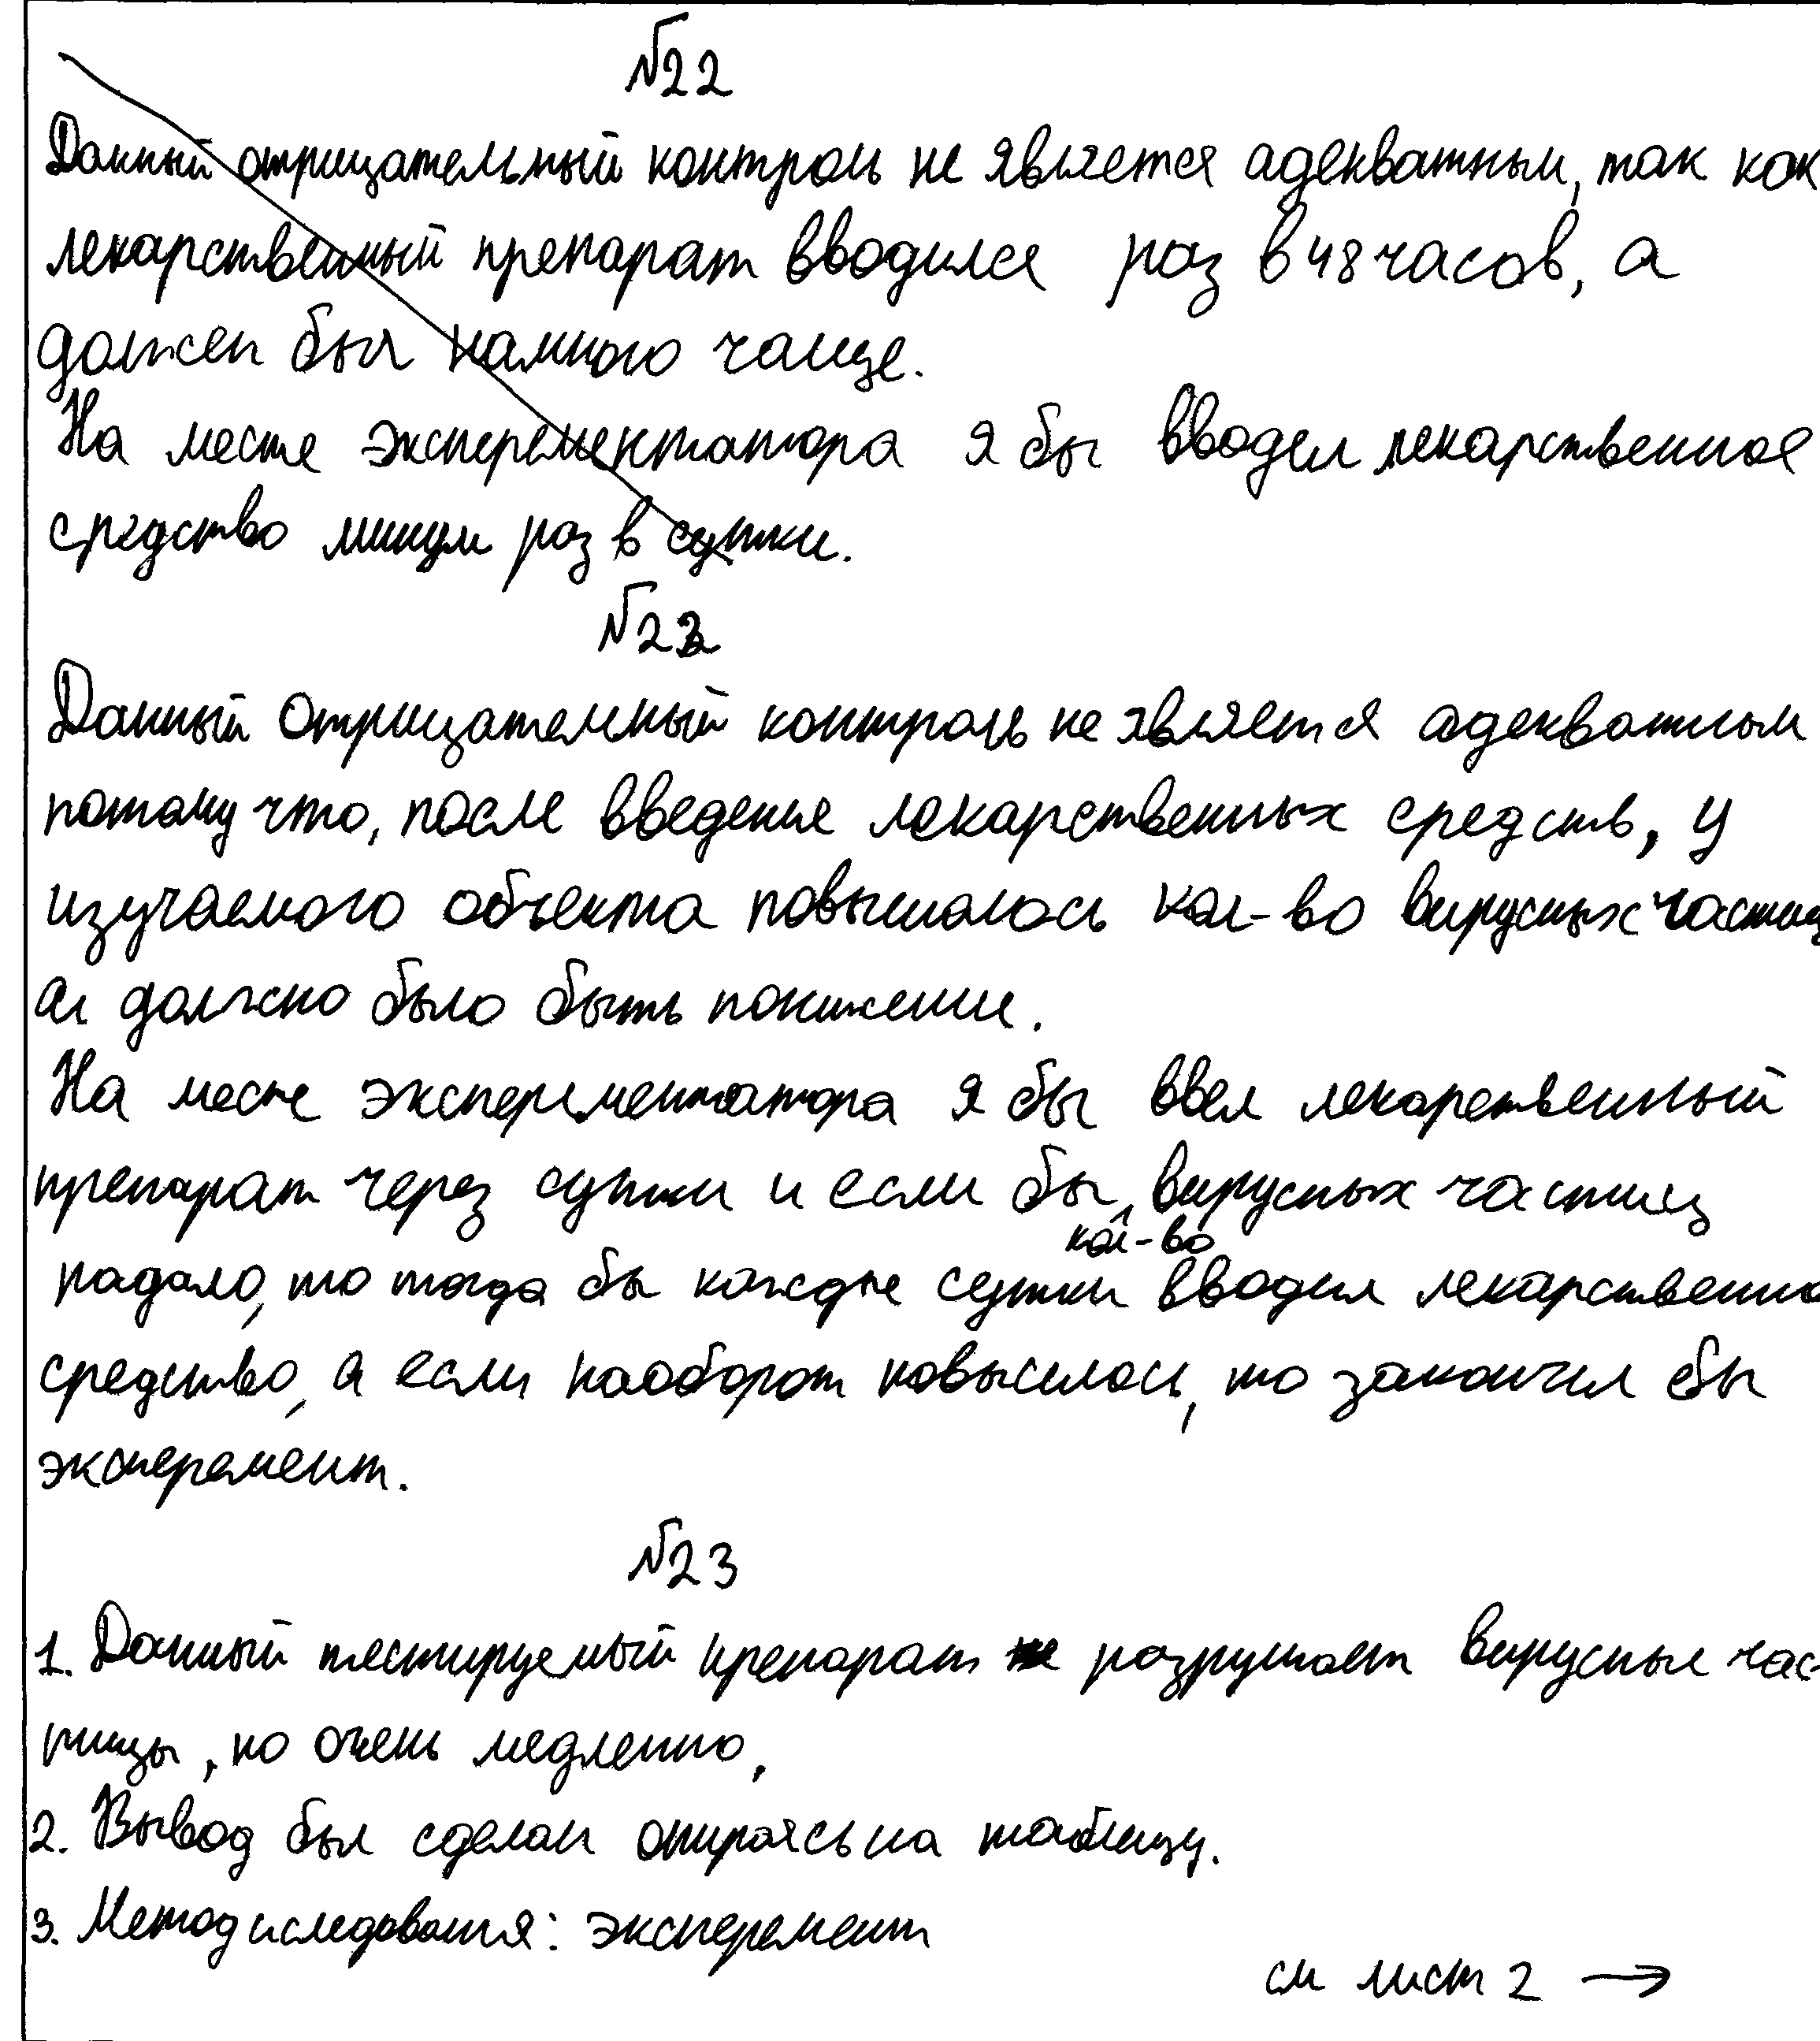 №22
Данный отрицательный контроль не является адекватным, так как
лекарственный препарат вводился раз в 48 часов, а
должен был намного чаще.
На месте эксперементатора я бы вводил лекарственное
средство миниум раз в сутки.
№22
Данный отрицательный контроль не является адекватным
потому что, после введенье лекарственных средств, у
изучаемого объекта повышалось кол-во вирусных частиц
а должно было быть понижение.
На месте эксперементатора я бы ввел лекарственный
препарат через сутки и если бы кол-во вирусных частиц
падало, то тогда бы каждые сутки вводил лекарственно
средство, а если наоборот повысилось, то закончил бы
эксперемент.
№23
1. Данный тестируемый препарат разрушает вирусные час-
тицы, но очень медленно,
2. Вывод был сделан опираясь на таблицу.
3. Метод иследования: эксперемент
см лист 2 →